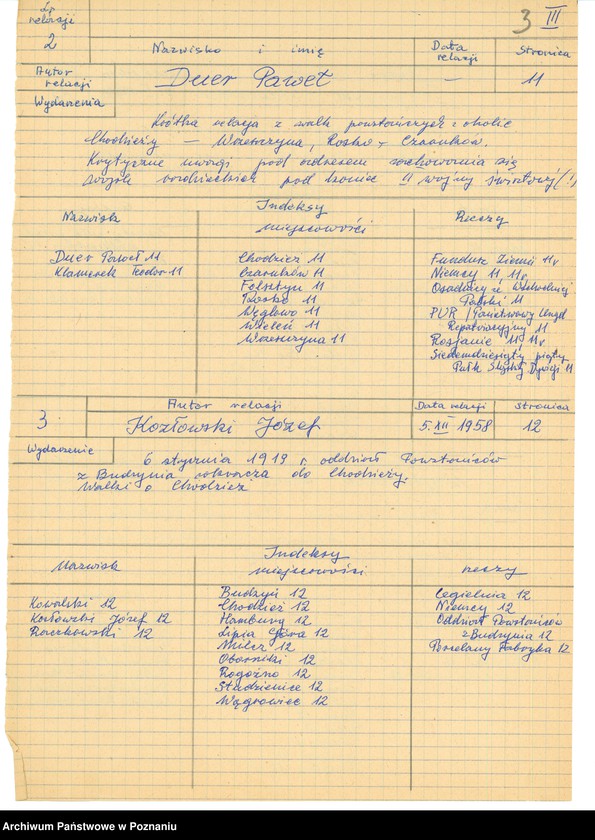 Lp relacji
3 III
2
Nazwisko i imię
Data relacji
Stronica
Autor relacji
Duer Paweł
—
11
Wydarzenia
Krótka relacja z walk powstańczych z okolic
Chodzieży — Wrzeszczyna, Rosko i Czarnków.
Krytyczne uwagi pod adresem zachowania się
wojsk radzieckich pod koniec II wojny światowej (!)
Indeksy
Nazwisk
miejscowości
Rzeczy
Duer Paweł 11
Klamerek Teodor 11
Chodzież 11
Czarnków 11
Felsztyn 11
Rosko 11
Węglewo 11
Wieleń 11
Wrzeszczyna 11
Fundusz Ziemi 11v
Niemcy 11 11v
Osadnicy ze Wschodniej
Polski 11
PUR /Państwowy Urząd
Repatriacyjny 11
Rosjanie 11 11v
Siedemdziesiąty piąty
Pułk Dywizji 11
3
Autor relacji
Data relacji
Stronica
Kozłowski Józef
5. XII 1958
12
Wydarzenie
6 stycznia 1919 r. oddział Powstańców
z Budzynia do Chodzieży.
Walki o Chodzież
Indeksy
Nazwisk
miejscowości
rzeczy
Kowalski 12
Kozłowski Józef 12
Raczkowski 12
Budzyń 12
Chodzież 12
Hamburg 12
Lipia Góra 12
Milcz 12
Oborniki 12
Rogoźno 12
Studzieniec 12
Wągrowiec 12
Cegielnia 12
Niemcy 12
Oddział Powstańców
z Budzynia 12
Porcelany Fabryka 12
Archiwum Państwowe w Poznaniu